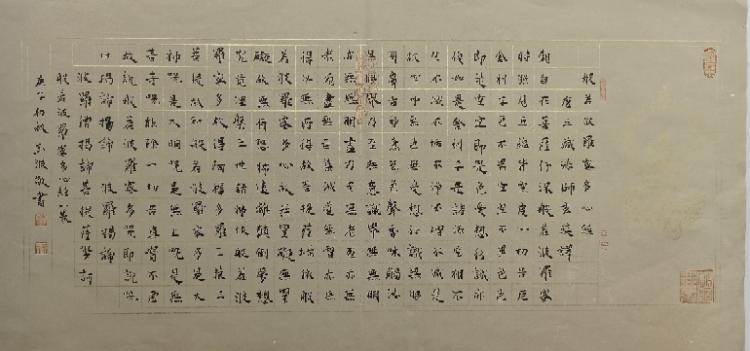 般若波羅蜜多心經
唐三藏法師玄奘譯
觀自在菩薩行深般若波羅蜜多
時照見五蘊皆空度一切苦厄
舍利子色不異空空不異色色
即是空空即是色受想行識亦
復如是舍利子是諸法空相不
生不滅不垢不淨不增不減是
故空中無色無受想行識無眼
耳鼻舌身意無色聲香味觸法
無眼界乃至無意識界無無明
亦無無明盡乃至無老死亦無
老死盡無苦集滅道無智亦無
得以無所得故菩提薩埵依般
若波羅蜜多故心無罣礙無罣
礙故無有恐怖遠離顛倒夢想
究竟涅槃三世諸佛依般若波
羅蜜多故得阿耨多羅三藐三
菩提故知般若波羅蜜多是大
神咒是大明咒是無上咒是無
等等咒能除一切苦真實不虛
故說般若波羅蜜多咒即說咒
曰揭諦揭諦 波羅揭諦
波羅僧揭諦菩提薩婆訶
般若波羅蜜多心經一卷
庚子初秋 敬書